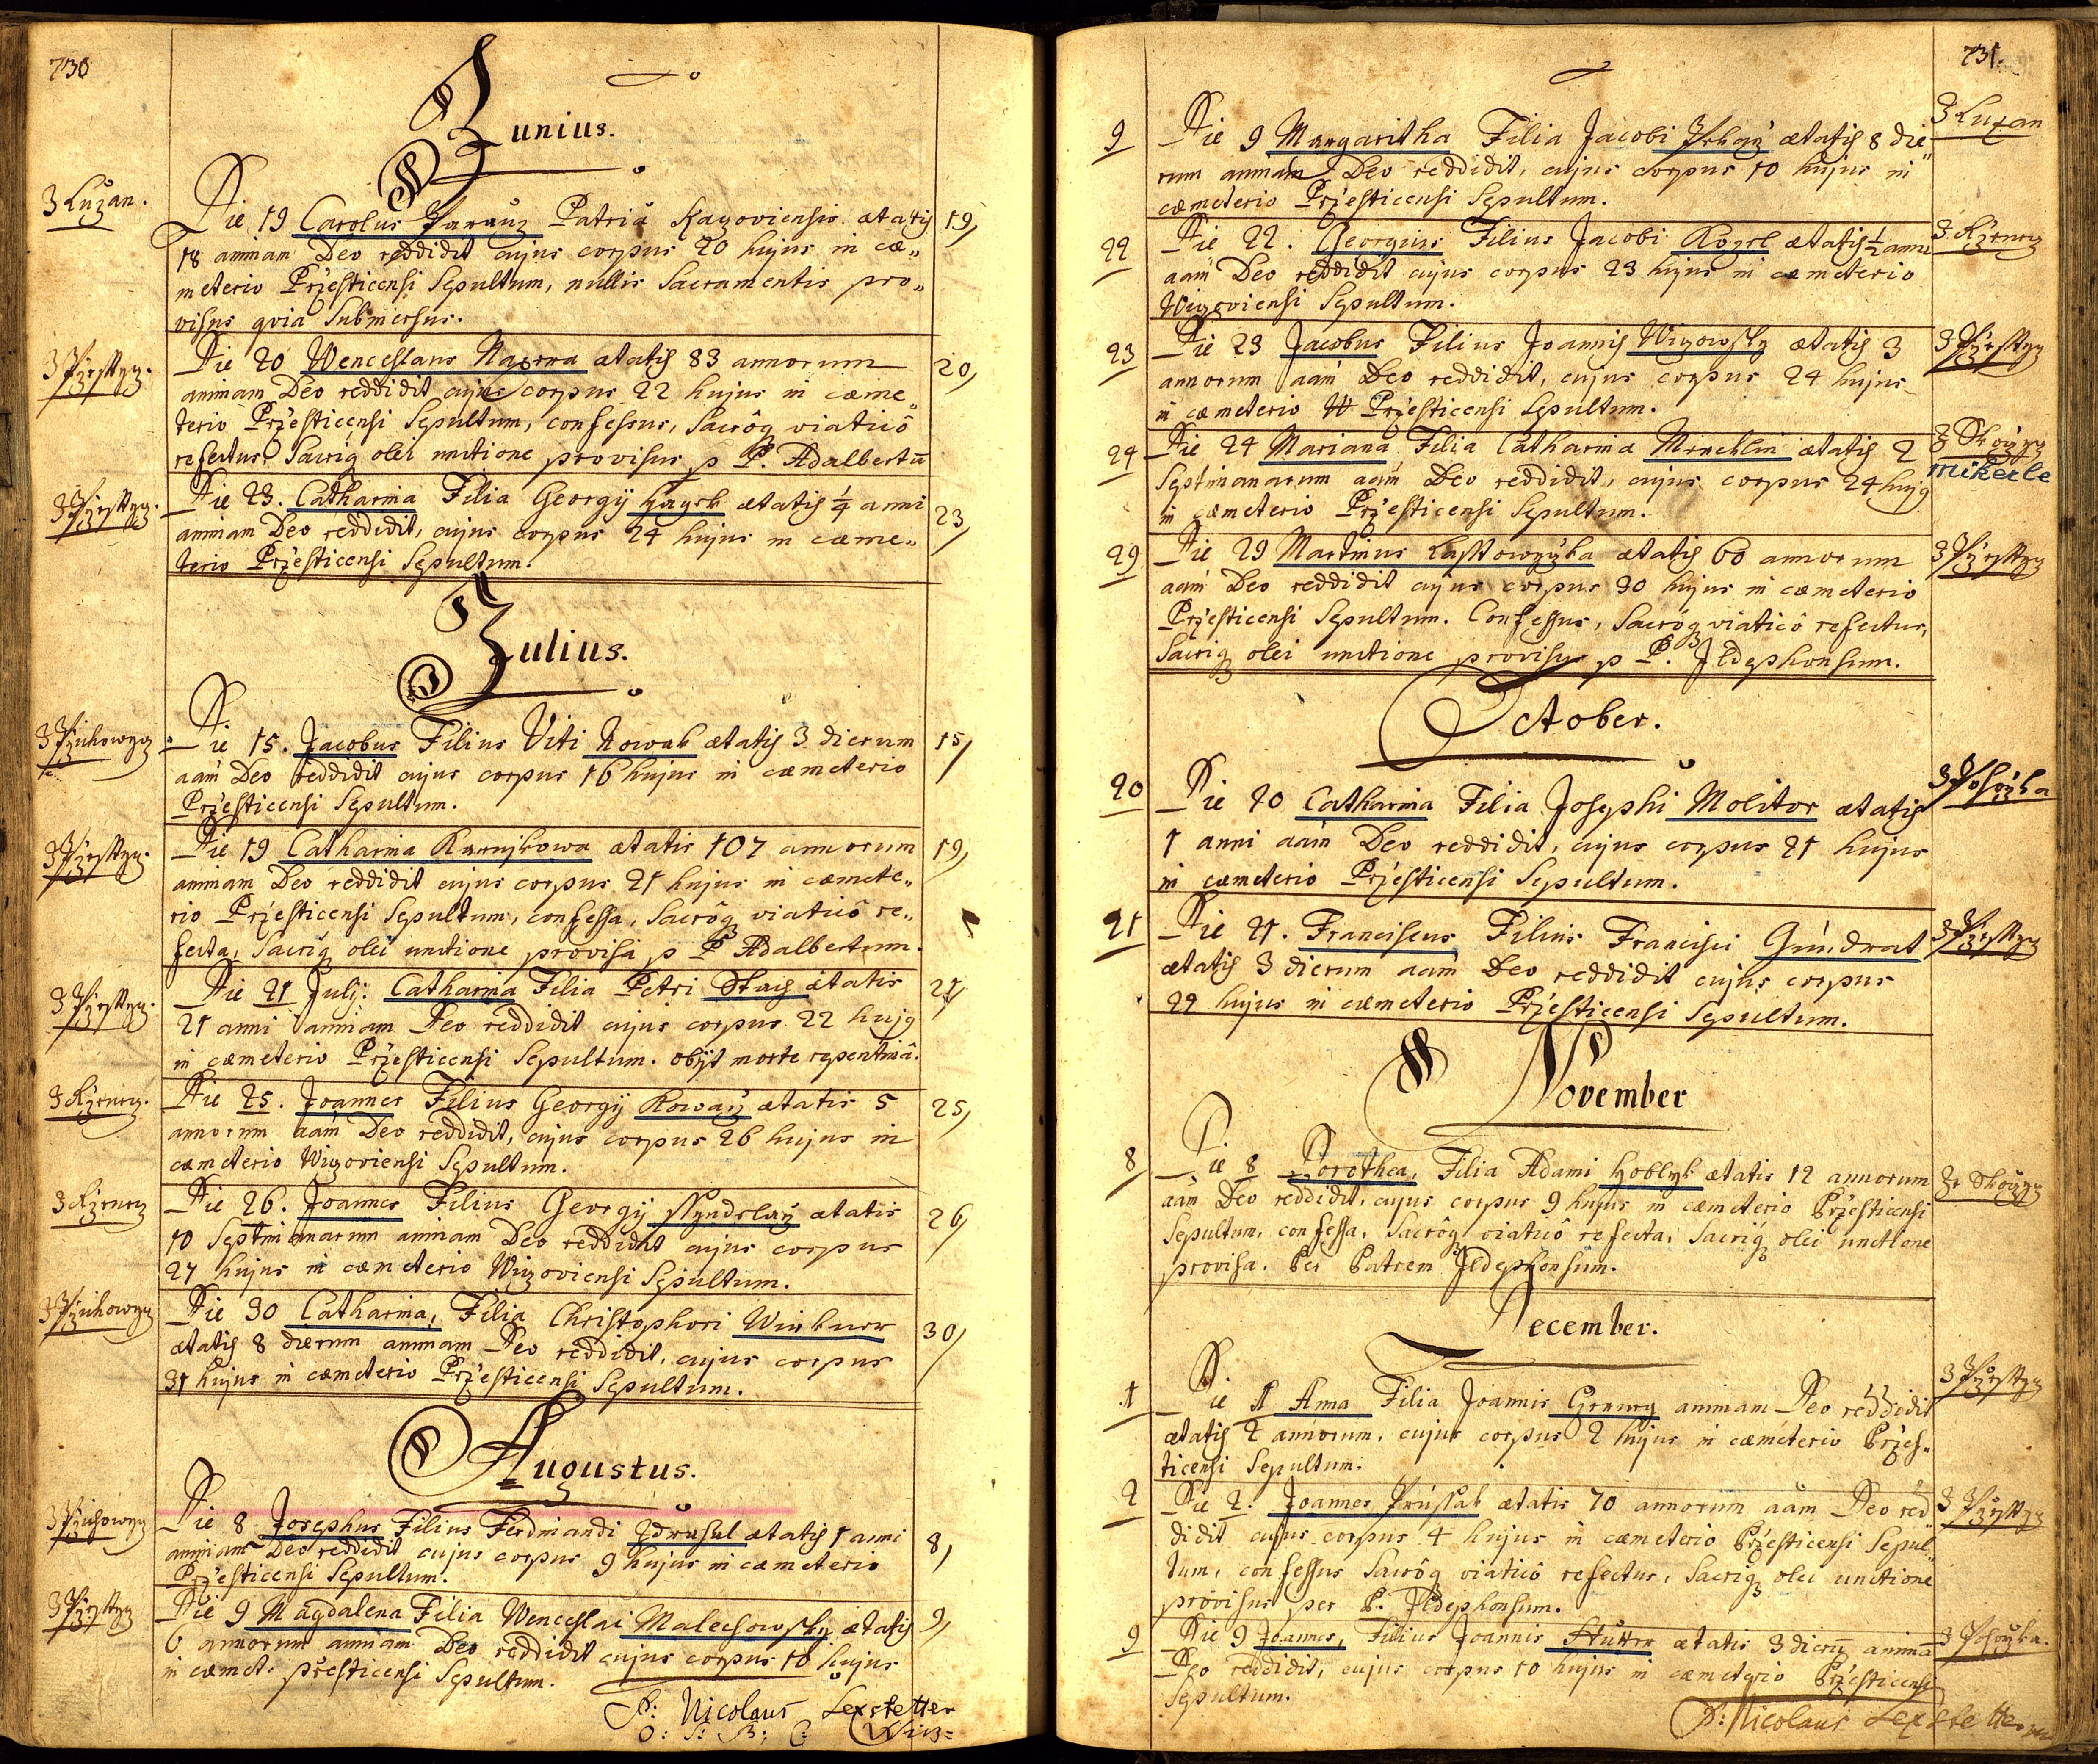 730
Junius.
Z Lužan.
Die 19 Carolus Patria ætatis 19
18 animam Deo reddidit cujus corpus 20 hujus in cæ„
meterio Przesticensi Sepultum, nullis Sacramentis pro„
visus qvia Submersus.
Die 20 Wenceslaus ætatis 83 annorum 20
animam Deo reddidit cujus corpus 22 hujus in cæme„
terio Przesticensi Sepultum, confessus, Sacrôq viaticô
refectus, Sacriq olei unctione provisus p P. Adalbertū
Die 23. Catharina Filia Georgij ætatis ¼ anni 23
animam Deo reddidit, cujus corpus 24 hujus in cæme„
terio Przesticensi Sepultum.
Julius.
Die 15. Jacobus Filius Viti Nowak ætatis 3 dierum 15
aam Deo reddidit cujus corpus 16 hujus in cæmeterio
Przesticensi Sepultum.
Die 19 Catharina ætatis 107 annorum 19
animam Deo reddidit cujus corpus 21 hujus in cæmete„
rio Przesticensi Sepultum, confessa, Sacrôq viaticô re„
fecta, Sacriq olei unctione provisa p P Adalbertum.
Die 21 Julij. Catharina Filia Petri Stach ætatis 21
21 anni animam Deo reddidit cujus corpus 22 hujq
in cæmeterio Przesticensi Sepultum. obijt morte repentinâ.
Die 25. Joannes Filius Georgij ætatis 5 25
annorum aam Deo reddidit, cujus corpus 26 hujus in
cæmeterio Wizoviensi Sepultum.
Die 26. Joannes Filius Georgij ætatis 26
10 Septimanarum animam Deo reddidit cujus corpus
27 hujus in cæmeterio Wizoviensi Sepultum.
Die 30 Catharina, Filia Christophori ætatis 30
ætatis 8 dierum animam Deo reddidit, cujus corpus
31 hujus in cæmeterio Przesticensi Sepultum.
Augustus.
Die 8 Josephus Filius Ferdinandi ætatis 1 anni 8
animam Deo reddidit cujus corpus 9 hujus in cæmeterio
Przesticensi Sepultum.
Die 9 Magdalena Filia Wenceslai Malechowsky ætatis 9
6 annorum animam Deo reddidit cujus corpus 10 hujus
in cæmet: przesticensi Sepultum.
P: Nicolaus Lexstetter
731.
Z Lužan
9 Die 9 Margaritha Filia Jacobi ætatis 8 die„
rum animam Deo reddidit, cujus corpus 10 hujus in
cæmeterio Przesticensi Sepultum.
22 Die 22. Georgius Filius Jacobi Kozel ætatis ½ anni
aam Deo reddidit cujus corpus 23 hujus in cæmeterio
Wizoviensi Sepultum.
23 Die 23 Jacobus Filius Joannis Wizowsky ætatis 3
annorum aam Deo reddidit, cujus corpus 24 hujus
in cæmeterio Przesticensi Sepultum.
24 Die 24 Mariana Filia Catharina ætatis 2
mikecle
Septimanarum aam Deo reddidit, cujus corpus 24 hujq
in cæmeterio Przesticensi Sepultum.
29 Die 29 Martinus ætatis 60 annorum
aam Deo reddidit cujus corpus 30 hujus in cæmeterio
Przesticensi Sepultum. Confessus, Sacrôq viaticô refectus,
Sacriq olei unctione provisus p P. Ildephonsum.
October.
20 Die 20 Catharina Filia Josephi Molitor ætatis
1 anni aam Deo reddidit, cujus corpus 21 hujus
in cæmeterio Przesticensi Sepultum.
21 Die 21. Franciscus Filius Francisci
ætatis 3 dierum aam Deo reddidit cujus corpus
22 hujus in cæmeterio Przesticensi Sepultum.
November
8 Die 8 Dorothea, Filia Adami ætatis 12 annorum
aam Deo reddidit, cujus corpus 9 hujus in cæmeterio Przesticensi
Sepultum, confessa, Sacrôq viaticô refecta, Sacriq olei unctione
provisa. Per Patrem Ildephonsum.
December.
1 Die 1 Anna Filia Joannis animam Deo reddidit
ætatis 2 annorum, cujus corpus 2 hujus in cæmeterio Przes„
ticensi Sepultum.
2 Die 2. Joannes ætatis 70 annorum aam Deo red„
didit cujus corpus 4 hujus in cæmeterio Przesticensi Sepul„
tum, confessus Sacrôq viaticô refectus, Sacriq olei unctione
provisus per P. Ildephonsum.
9 Die 9 Joannes, Filius Joannis ætatis 3 dierū animā
Deo reddidit, cujus corpus 10 hujus in cæmeterio Przesticensi
Sepultum.
P: Nicolaus Lexstetter